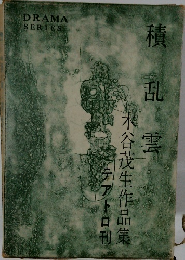 DRAMA
SERIES
積乱雲
水谷茂生作品集
テアトロ刊